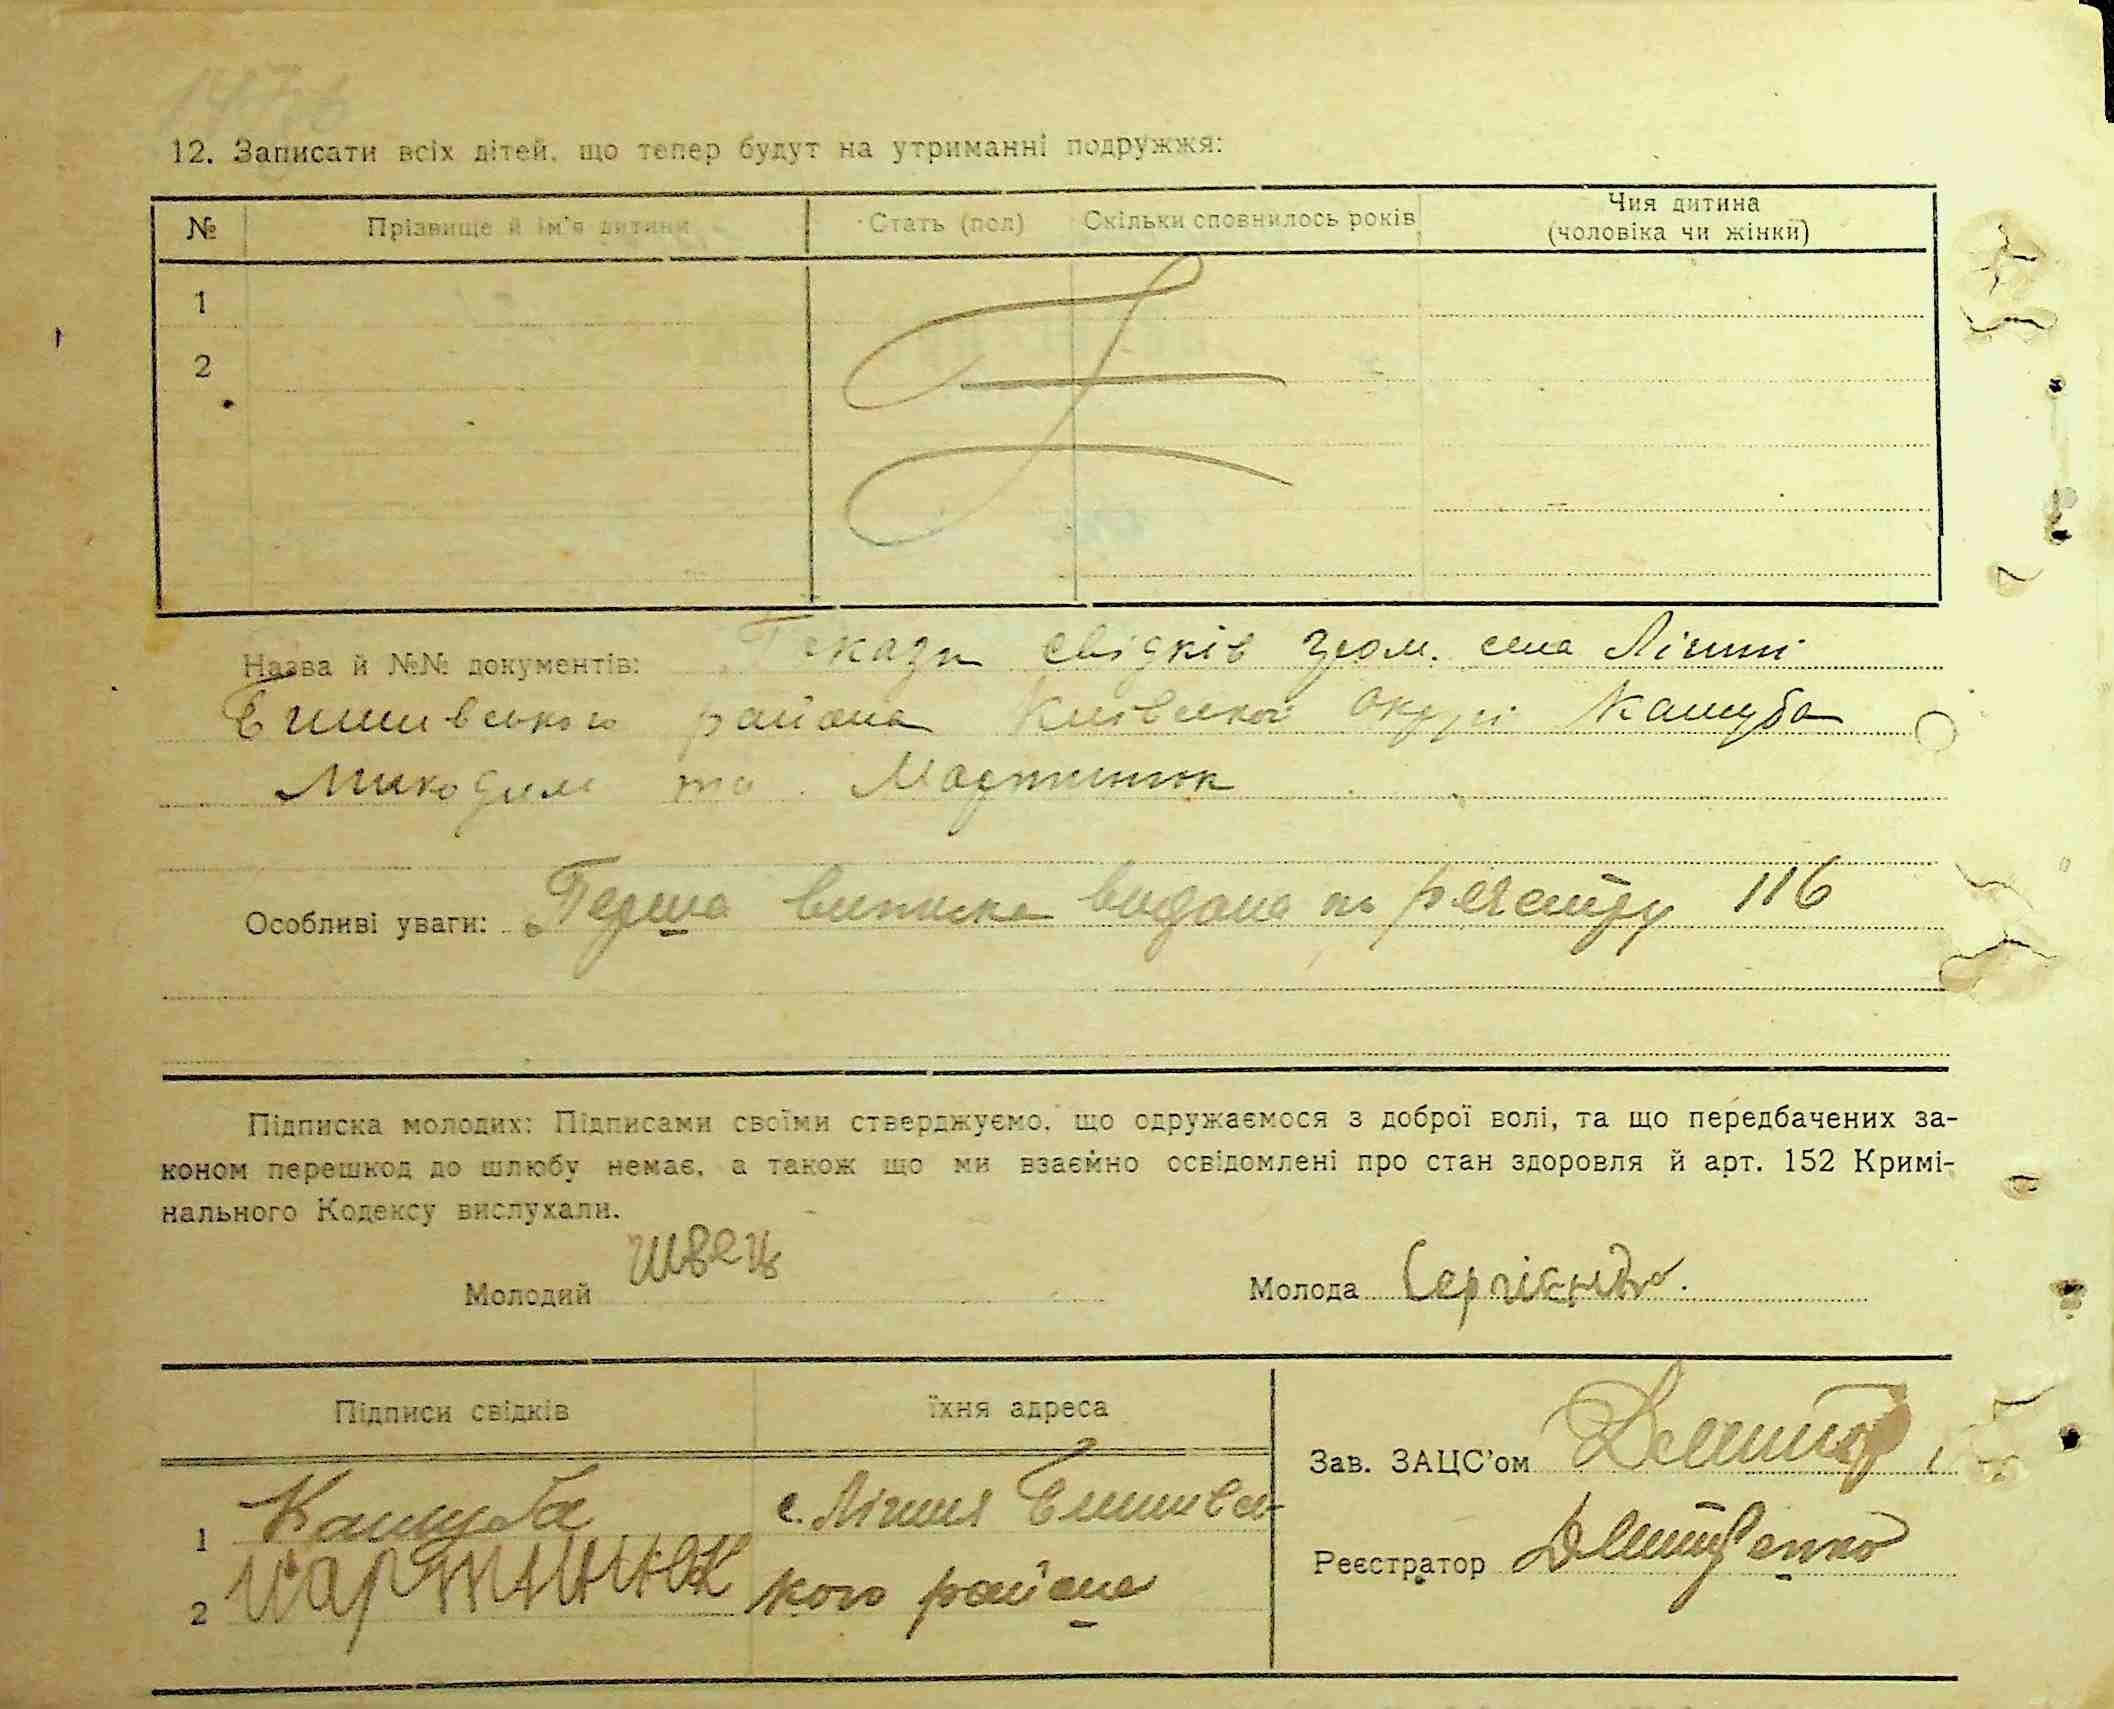 12. Записати всіх дітей, що тепер будут на утриманні подружжя:
№ Прізвище й ім'я дитини Стать (пол) Скільки сповнилось років Чия дитина (чоловіка чи жінки)
1
2
Назва й №№ документів: Покази свідків гром. села Лічині
району Київської Округи Кашуба
Микодим та Мартинюк
Особливі уваги: Перша виписка видана по реєстру 116
Підписка молодих: Підписами своїми стверджуємо, що одружаємося з доброї волі, та що передбачених за-
коном перешкод до шлюбу немає, а також що ми взаємно освідомлені про стан здоровля й арт. 152 Кримі-
нального Кодексу вислухали.
Молодий Швець Молода Сергієнко.
Підписи свідків їхня адреса
Зав. ЗАЦС'ом
1 Кашуба с.
2 Мартинюк кого района
Реєстратор